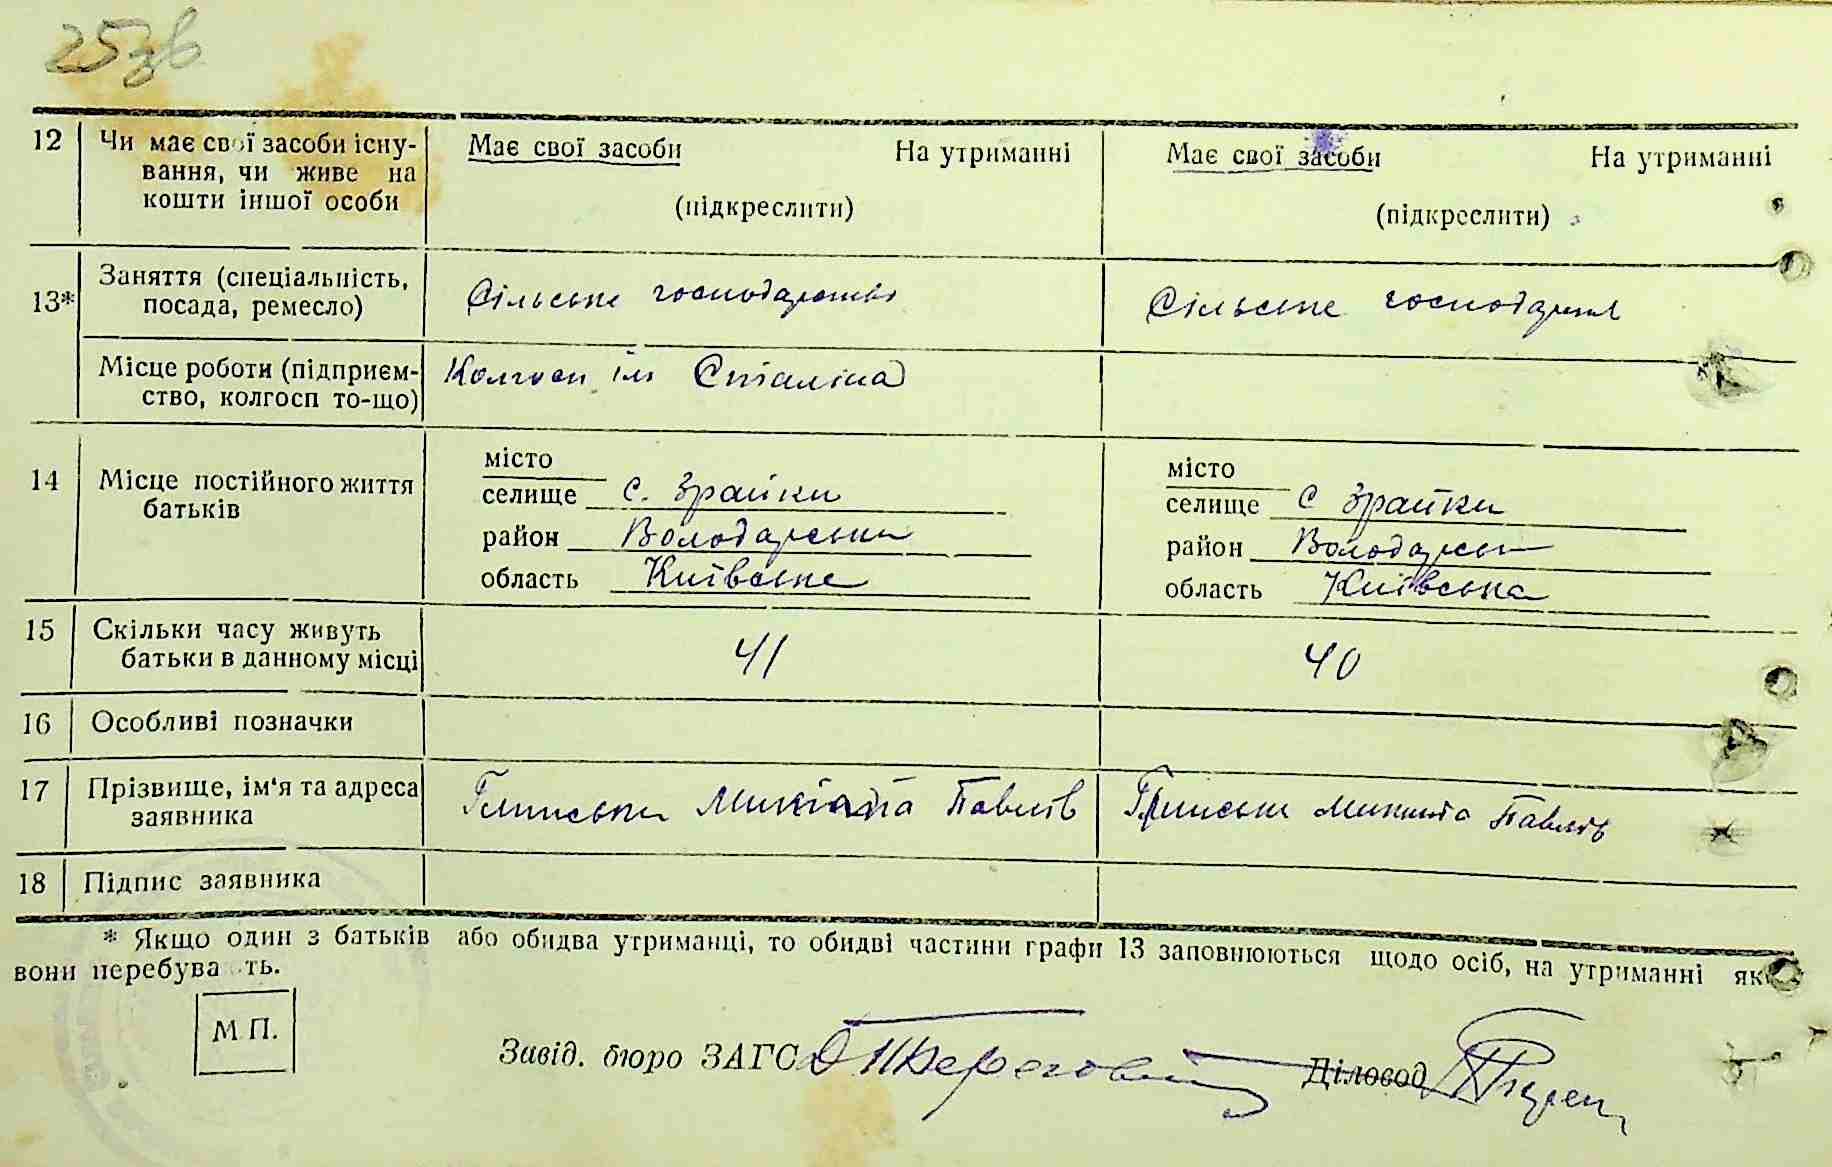 25зв
12 Чи має свої засоби існу- Має свої засоби На утриманні Має свої засоби На утриманні
вання, чи живе на
кошти іншої особи (підкреслити) (підкреслити)
Заняття (спеціальність,
13* посада, ремесло) Сільське господарство Сільське господарств
Місце роботи (підприєм- Колгосп ім Сталіна
ство, колгосп то-що)
місто місто
14 Місце постійного життя селище с. Зрайки селище с Зрайки
батьків район Володарськи район Володарськ
область Київське область Київська
15 Скільки часу живуть
батьки в данному місці 41 40
16 Особливі позначки
17 Прізвище, ім'я та адреса Глинськи Микита Павлів Глинськи Микита Павлів
заявника
18 Підпис заявника
* Якщо один з батьків або обидва утриманці, то обидві частини графи 13 заповнюються щодо осіб, на утриманні як
вони перебува ть.
М.П.
Завід. бюро ЗАГС Діловод